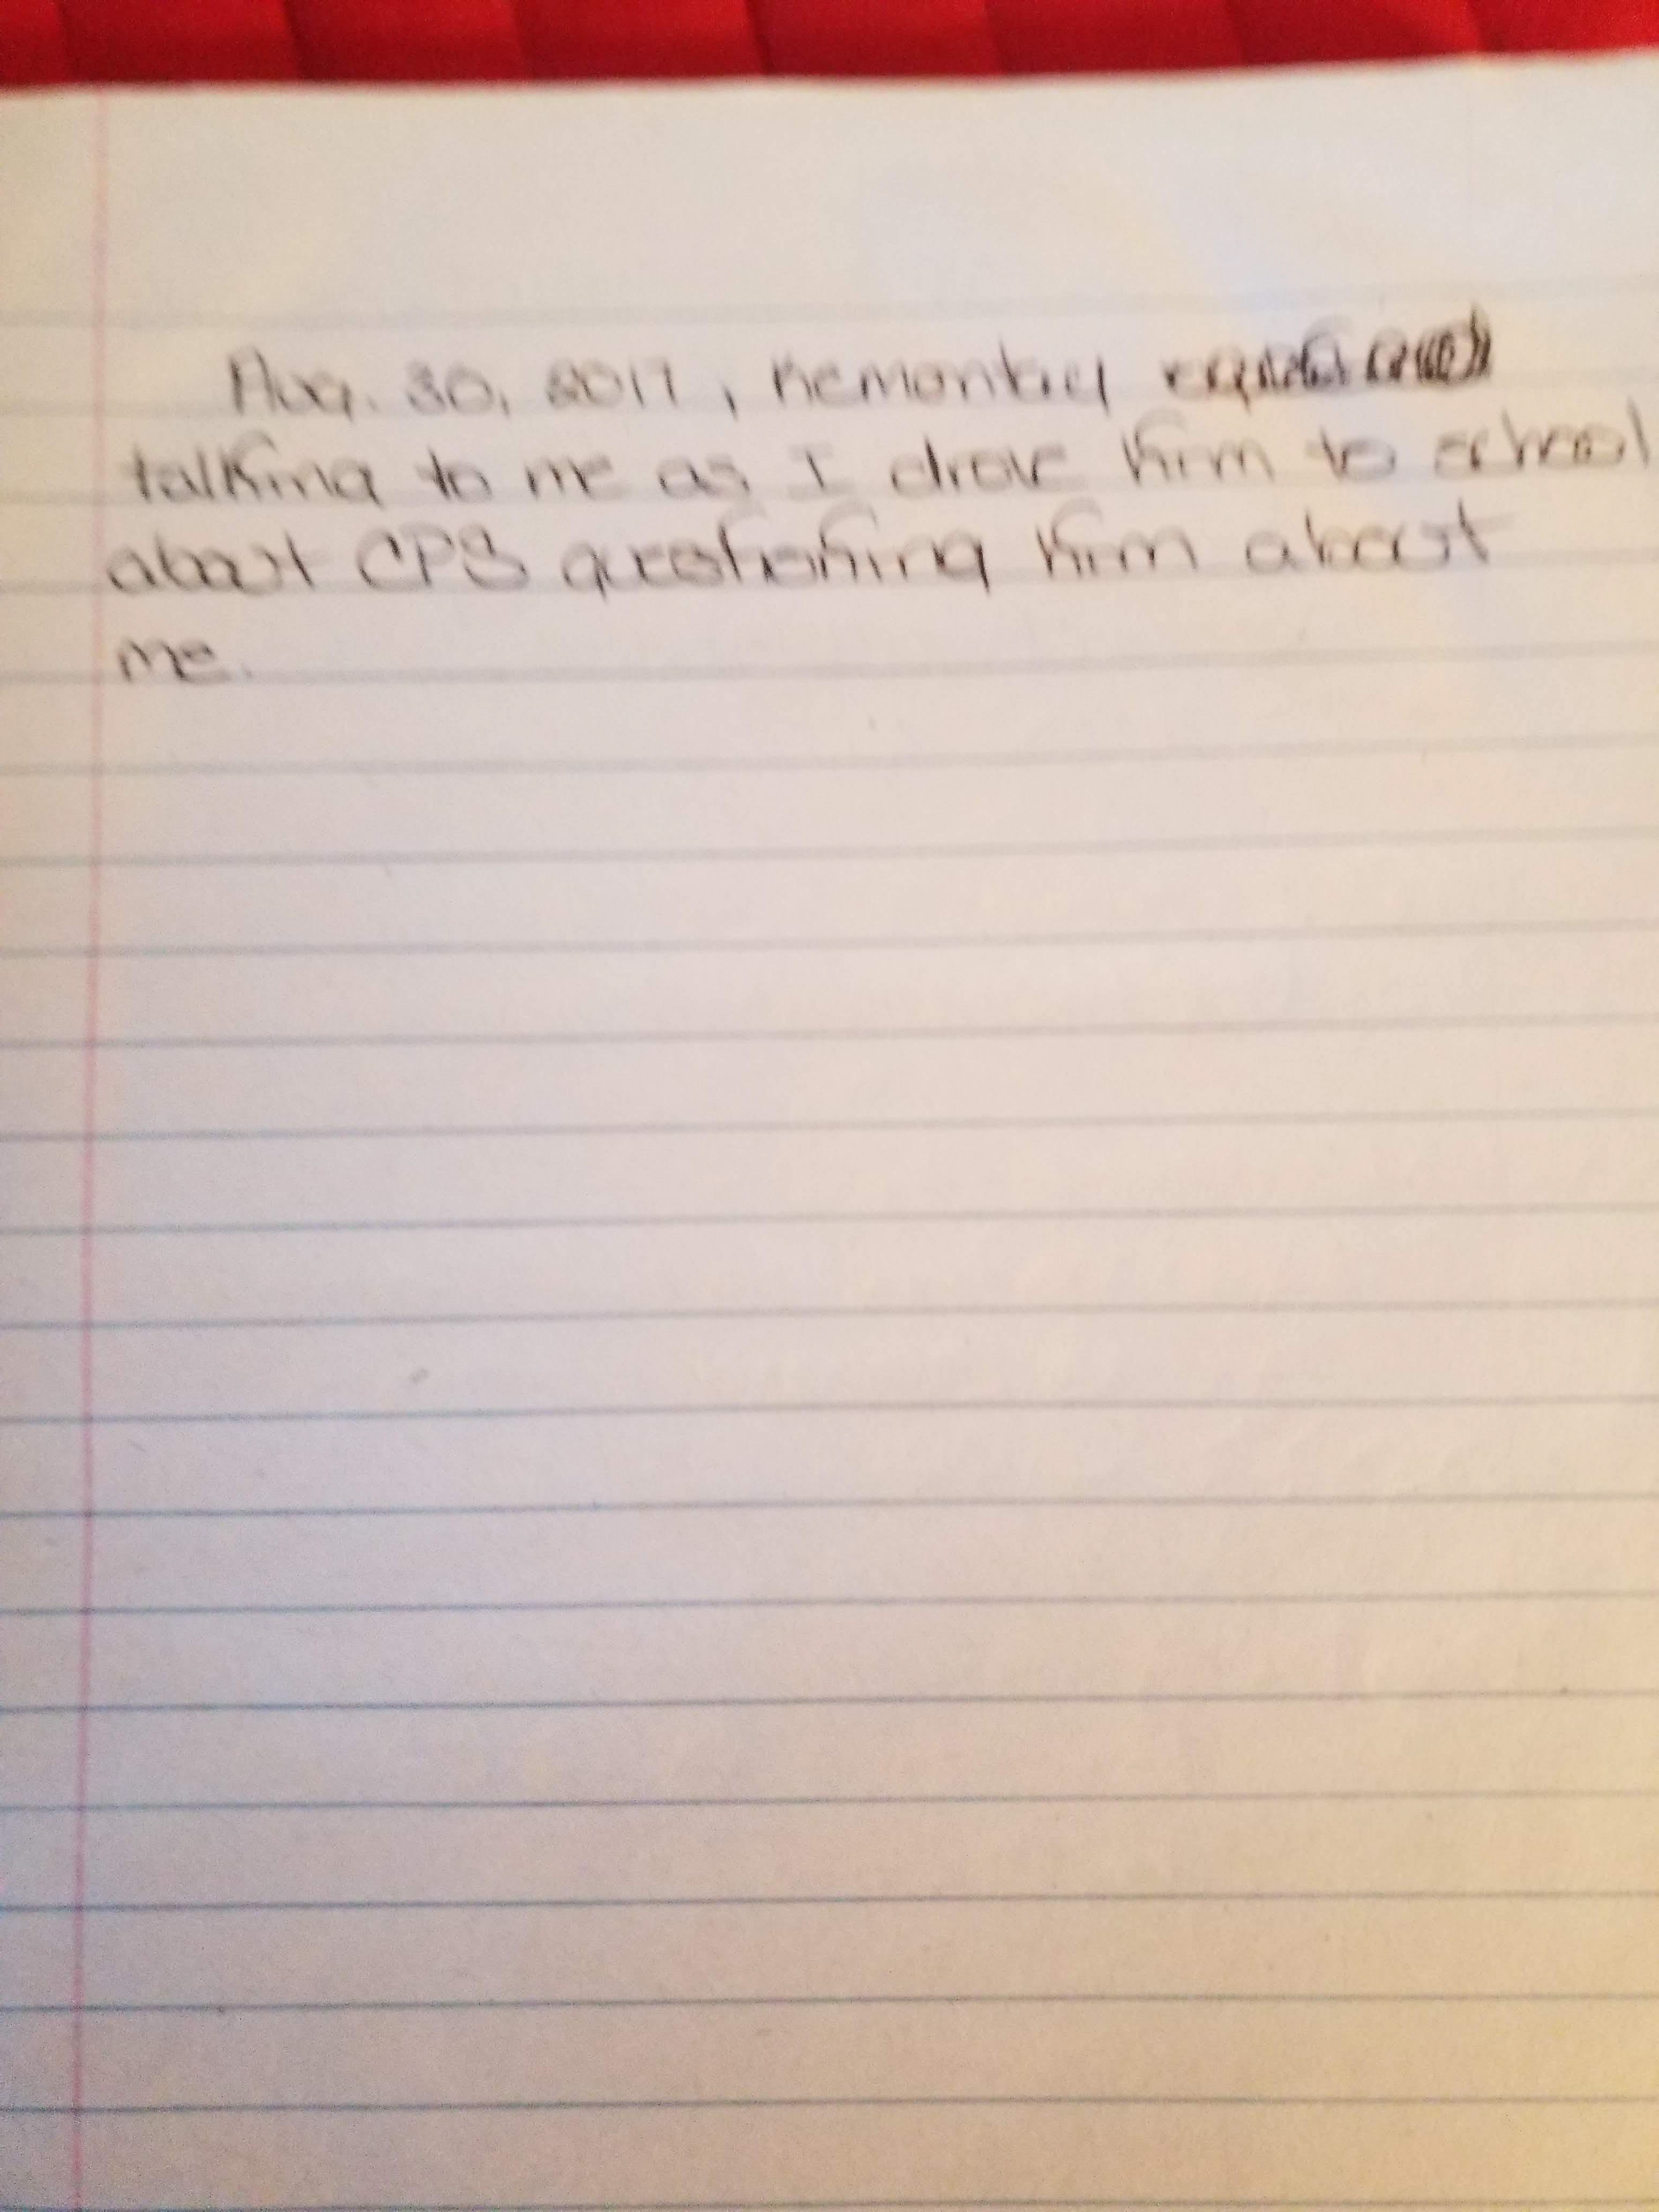 Aug. 30, 2017, Kemontay
talking to me as I drove him to school
about CPS questioning him about
me.